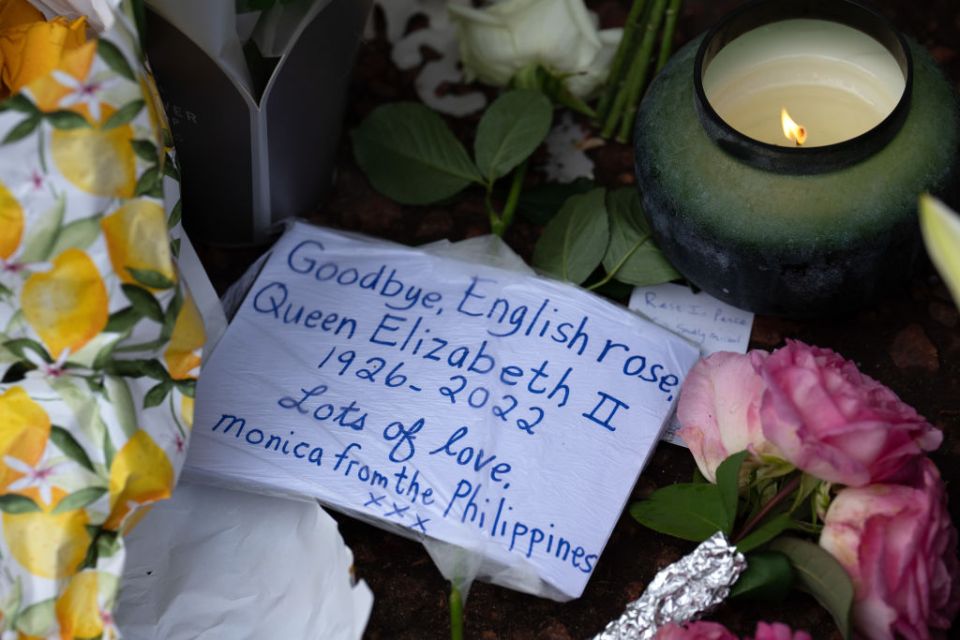 Goodbye, English rose,
Queen Elizabeth II
1926-2022
Lots of love.
monica from the Philippines
xxx
Rest In Peace